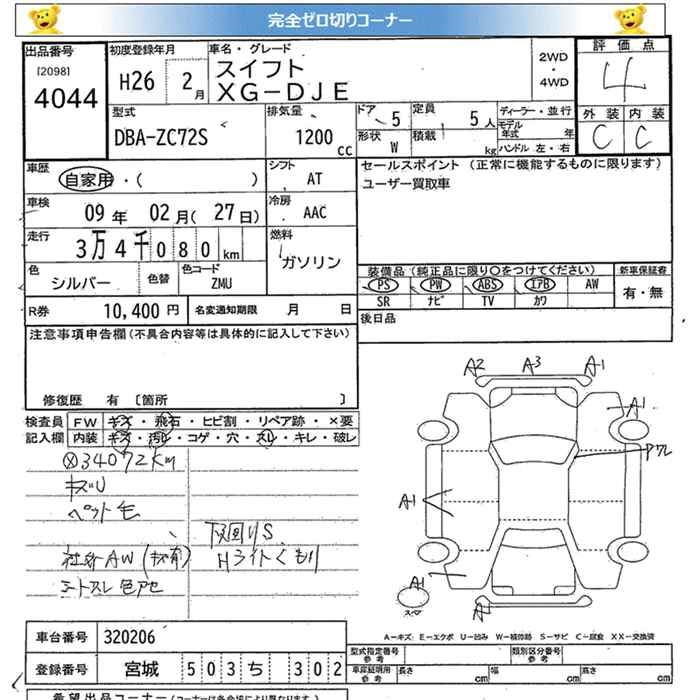 完全ゼロ切りコーナー
出品番号
[2098]
4044
初度登録年月
H26 2月
車名・グレード
スイフト
XG-DJE
2WD
・
4WD
評価点
4
外装 内装
C C
型式
DBA-ZC72S
排気量
1200cc
ドア 5
定員 5人
形状 W
積載 kg
ディーラー・並行
モデル年式 年
ハンドル 左・右
車歴
自家用・( )
シフト
AT
セールスポイント (正常に機能するものに限ります)
ユーザー買取車
車検
09年 02月(27日)
冷房
AAC
走行
3万4千080km
燃料
ガソリン
色
シルバー
色替
色コード
ZMU
装備品 (純正品に限り○をつけてください)
新車保証書
PS PW ABS エアB AW
SR ナビ TV カワ
有・無
R券 10,400円
名変通知期限 月 日
後日品
注意事項申告欄(不具合内容等は具体的に記入して下さい)
修復歴 有 〔箇所 〕
検査員
記入欄
FW キズ・飛石・ヒビ割・リペア跡・×要
内装 キズ・汚レ・コゲ・穴・スレ・キレ・破レ
34072Km
キズU
ペット毛
下回りS
社外AW(キズ有)
Hライトくもり
シートスレ色アセ
A2 A3 A1
A1
Pワレ
A1
A1
スペア
A1
A-キズ E-エクボ U-凹み W-補修跡 S-サビ C-腐食 XX-交換済
車台番号 320206
型式指定番号
参考
類別区分番号
参考
登録番号 宮城 503 ち 302
車庫証明用
参考
長さ cm
幅 cm
高さ cm
希望出品コーナー